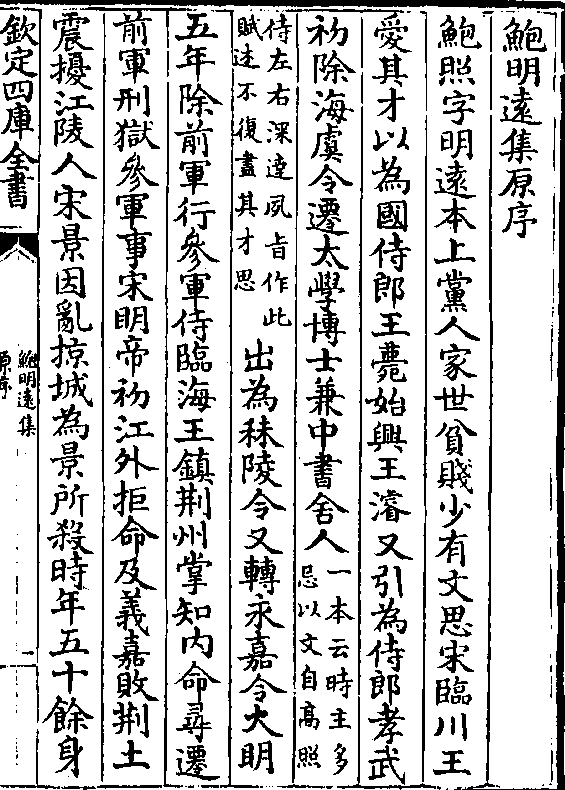 鮑明遠集原序
鮑照字明遠本上黨人家世貧賤少有文思宋臨川王
愛其才以為國侍郎王薨始興王濬又引為侍郎孝武
初除海虞令遷太學博士兼中書舍人
一本云時主多
忌以文自高照
侍左右深達夙㫖作此
賦述不復盡其才思
出為秣陵令又轉永嘉令大明
五年除前軍行參軍侍臨海王鎮荆州掌知内命尋遷
前軍刑獄參軍事宋明帝初江外拒命及義嘉敗荆土
震擾江陵人宋景因亂掠城為景所殺時年五十餘身
欽定四庫全書
鮑明遠集
原序
一